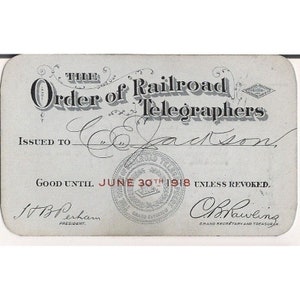 THE
Order of Railroad
Telegraphers
ISSUED TO C. E. Jackson
GOOD UNTIL JUNE 30TH 1918 UNLESS REVOKED.
H B Perham C.B. Rawlins
PRESIDENT. GRAND SECRETARY AND TREASURER